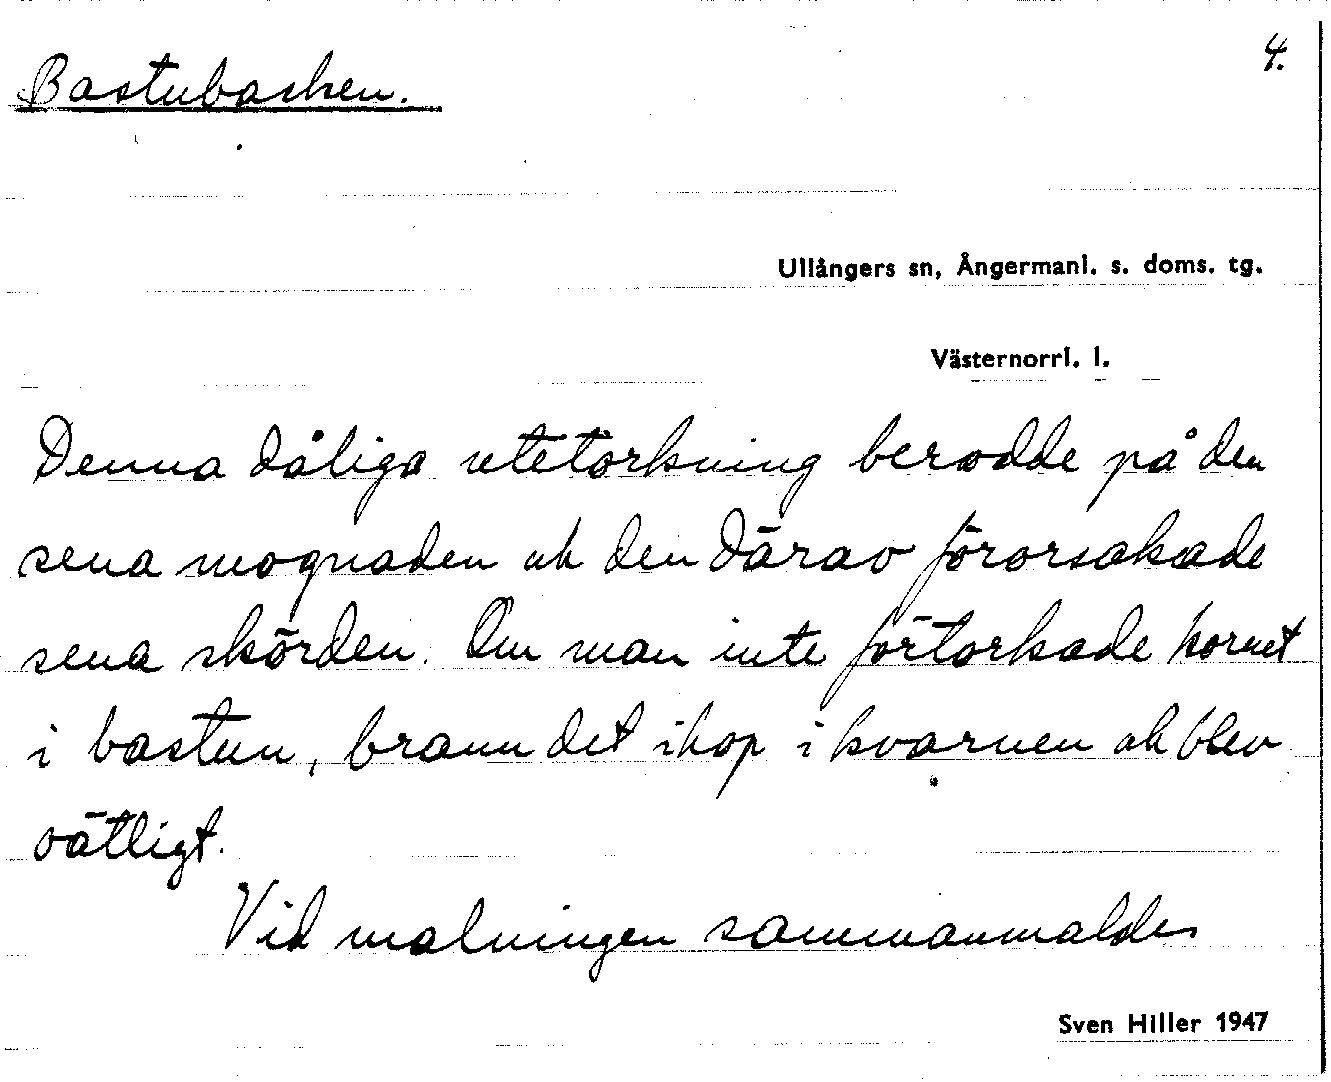 4.
Bastubacken.
Ullångers sn, Ångermanl. s. doms. tg.
Västernorrl. l.
Denna dåliga utetorkning berodde på den
sena mognaden och den därav förorsakade
sena skörden. Om man inte förtorkade kornet
i bastun, brann det ihop i kvarnen och blev
oätligt.
Vid malningen sammanmaldes
Sven Hiller 1947